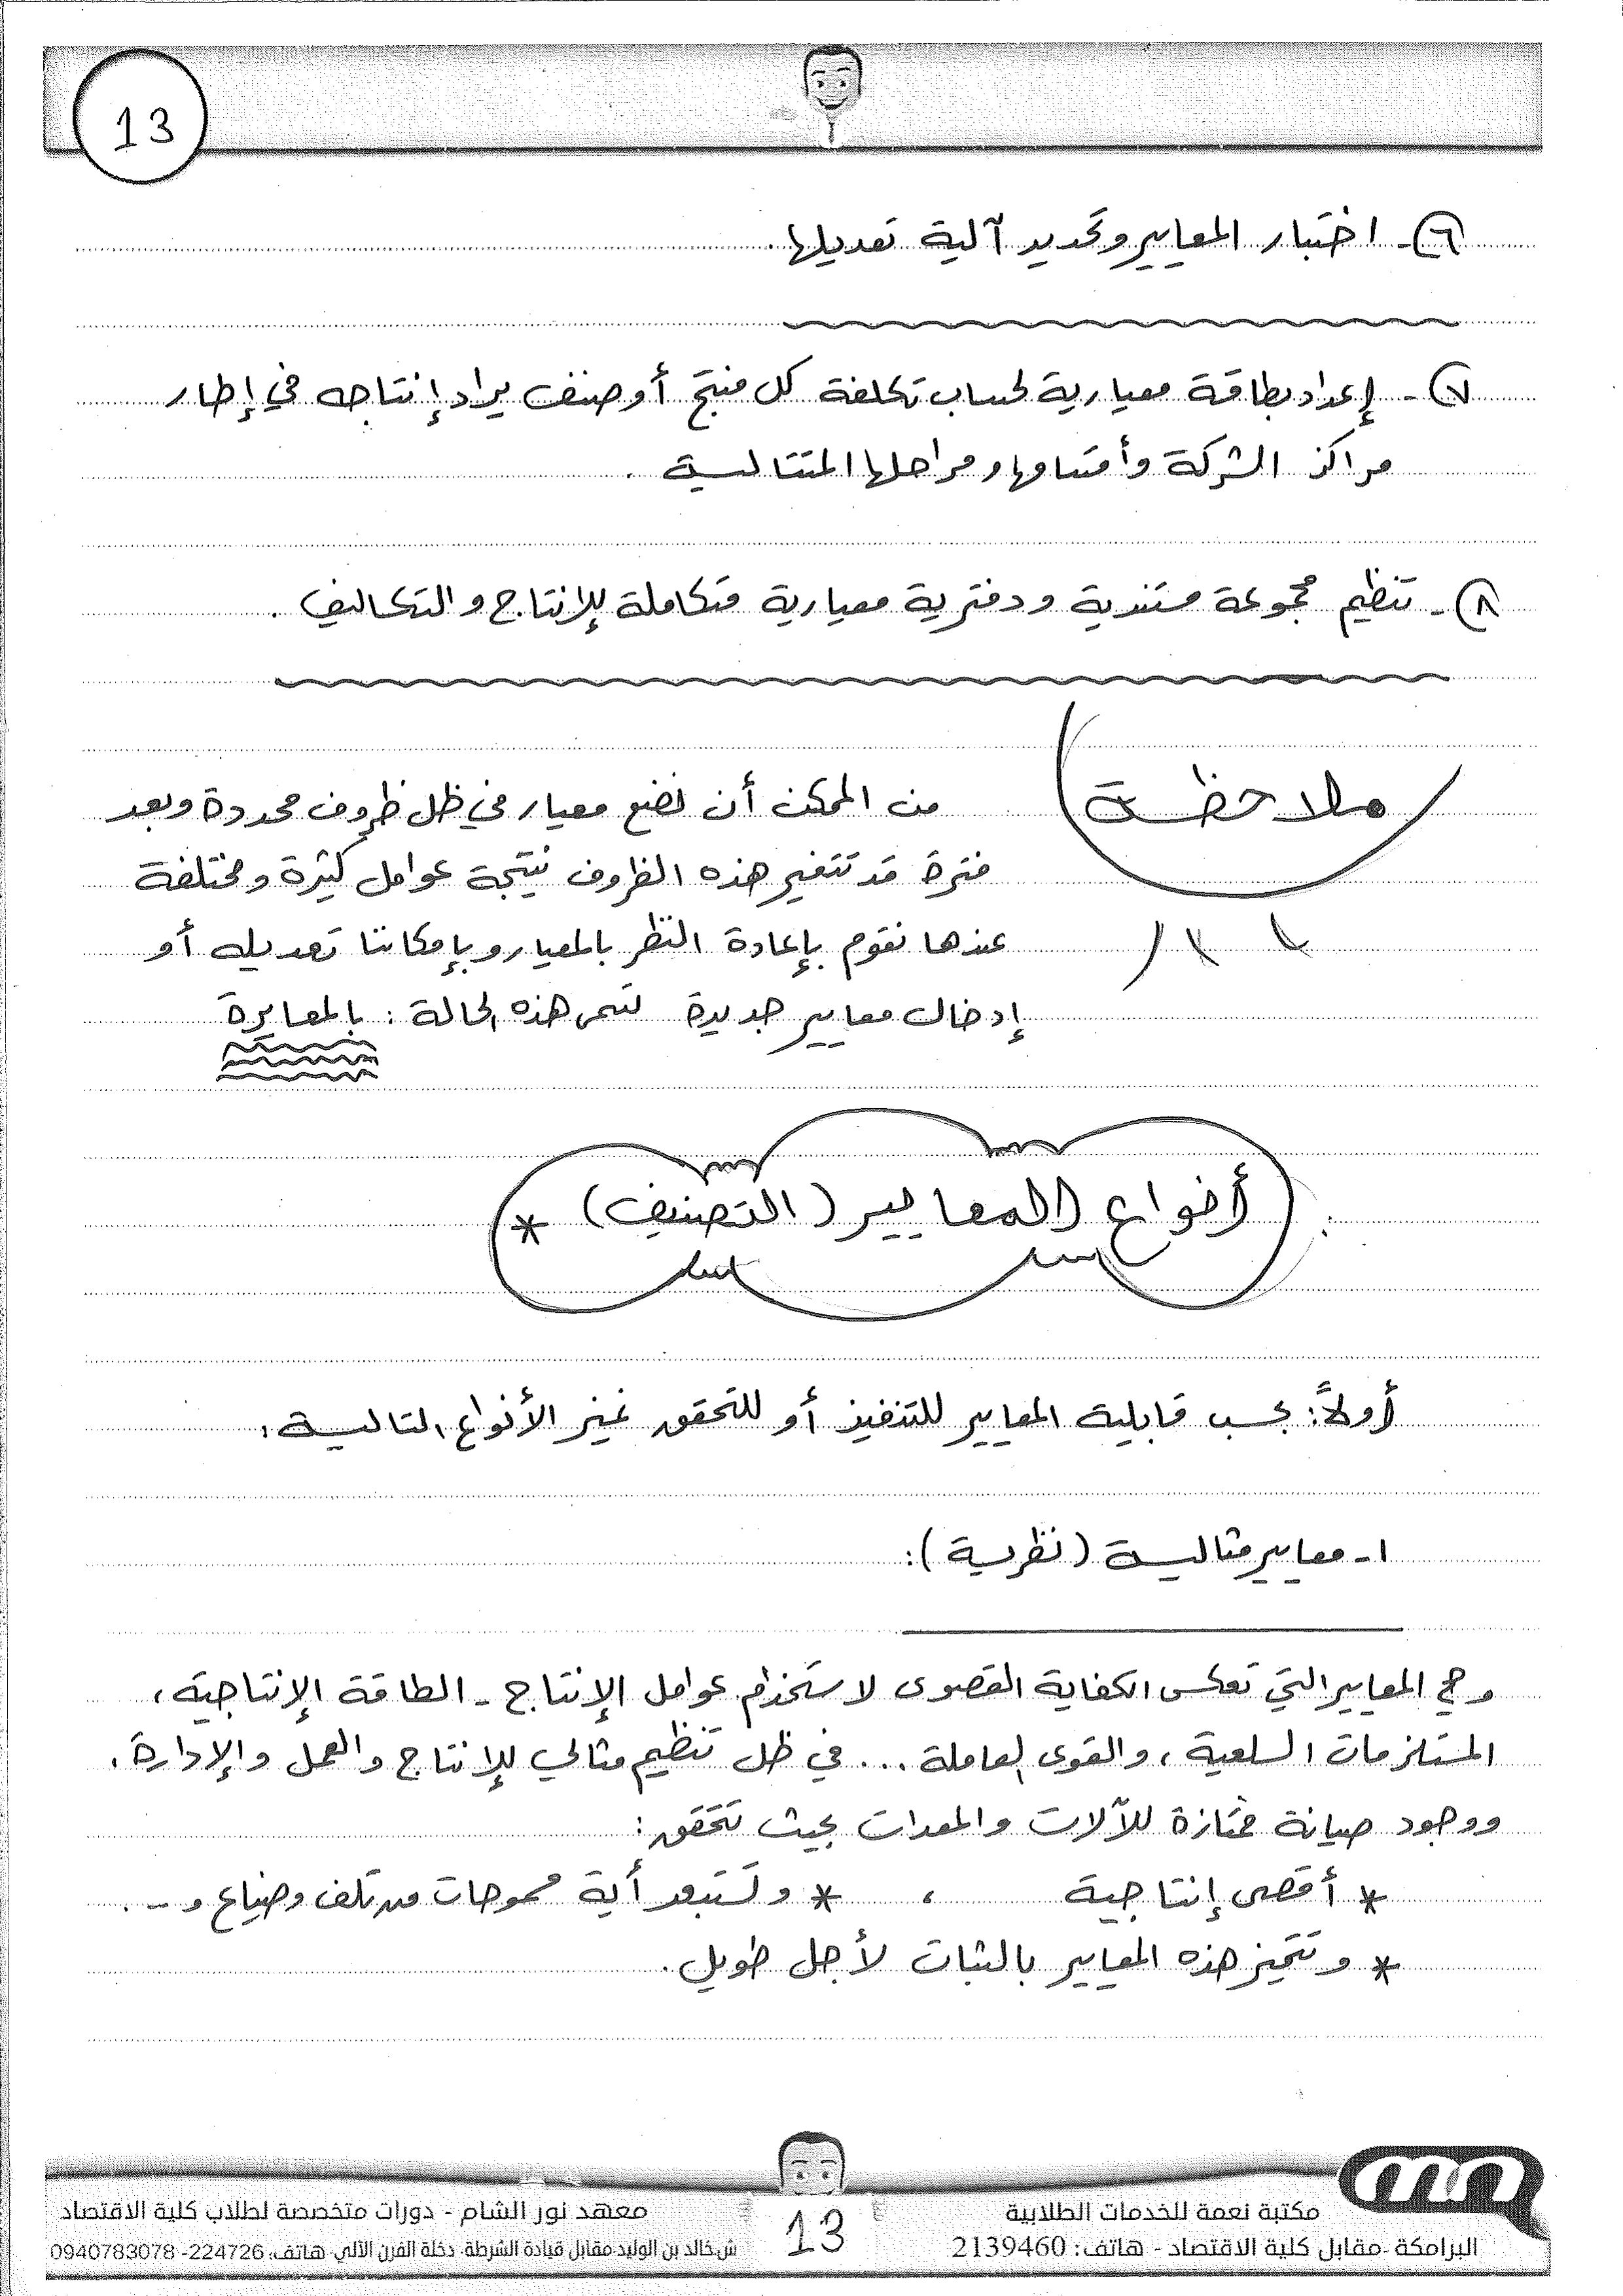 13
٦- اختبار المعايير وتحديد آلية تعديلها.
٧- إعداد بطاقة معيارية لحساب تكلفة كل منتج أو صنف يراد إنتاجه في إطار
مراكز الشركة وأقسامها ومراحلها المتتالية .
٨- تنظيم مجموعة مستندية ودفترية معيارية متكاملة للإنتاج والتكاليف .
ملاحظة
من الممكن أن نضع معيار في ظل ظروف محددة وبعد
فترة قد تتغير هذه الظروف نتيجة عوامل كثيرة ومختلفة
عندها نقوم بإعادة النظر بالمعيار وبإمكاننا تعديله أو
إدخال معايير جديدة تسمى هذه الحالة : بالمعايرة
أنواع المعايير (التصنيف) *
أولاً: بحسب قابلية المعايير للتنفيذ أو للتحقق نميز الأنواع التالية:
١- معايير مثالية (نظرية):
وهي المعايير التي تعكس الكفاية القصوى لاستخدام عوامل الإنتاج - الطاقة الإنتاجية،
المستلزمات السلعية، والقوى العاملة ... في ظل تنظيم مثالي للإنتاج والعمل والإدارة.
ووجود صيانة ممتازة للآلات والمعدات بحيث تتحقق:
* أقصى إنتاجية ، * وتستبعد أية مسموحات من تلف وضياع و ...
* وتتميز هذه المعايير بالثبات لأجل طويل.
مكتبة نعمة للخدمات الطلابية
البرامكة -مقابل كلية الاقتصاد - هاتف: 2139460
13
معهد نور الشام - دورات متخصصة لطلاب كلية الاقتصاد
ش.خالد بن الوليد-مقابل قيادة الشرطة- دخلة الفرن الآلي- هاتف: 224726- 0940783078